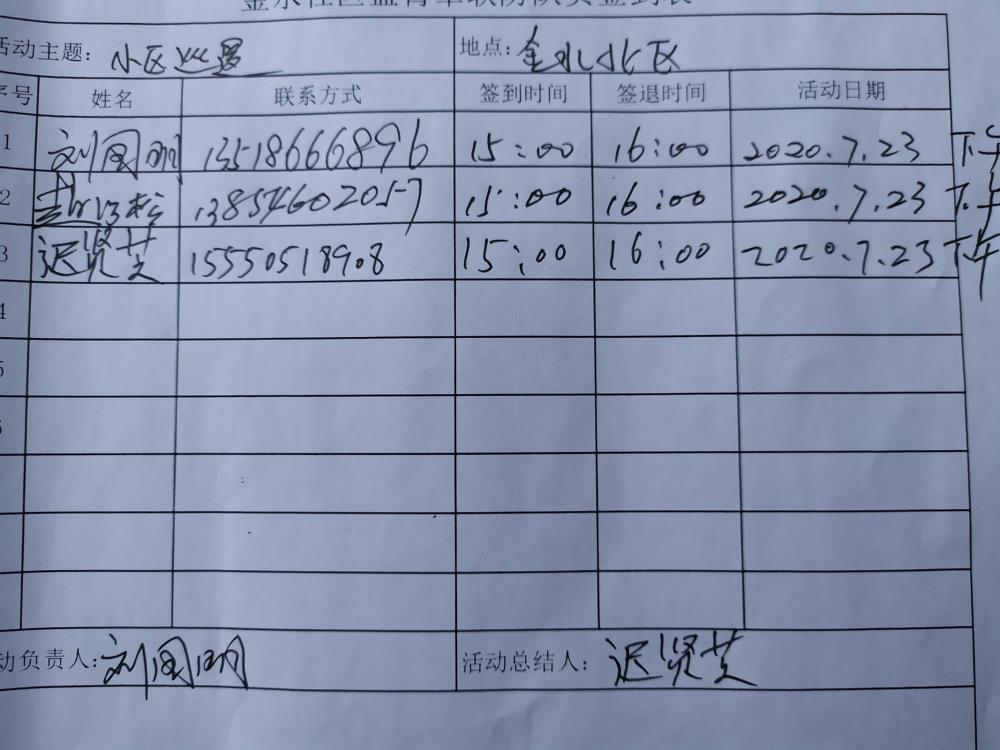 活动主题：小区巡逻 地点：金水北区
序号 姓名 联系方式 签到时间 签退时间 活动日期
1 刘国明 13518666896 15:00 16:00 2020.7.23 下午
2 13854602057 15:00 16:00 2020.7.23 下午
3 迟贤芝 15550518908 15:00 16:00 2020.7.23 下午
4
5
动负责人：刘国明 活动总结人：迟贤芝